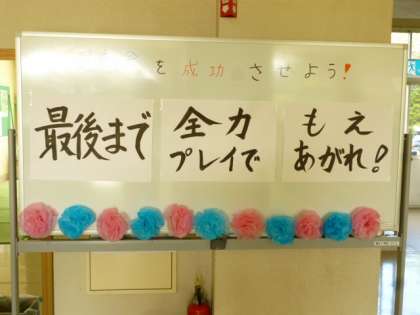 会を成功させよう!
最後まで
全力
プレイで
もえ
あがれ!